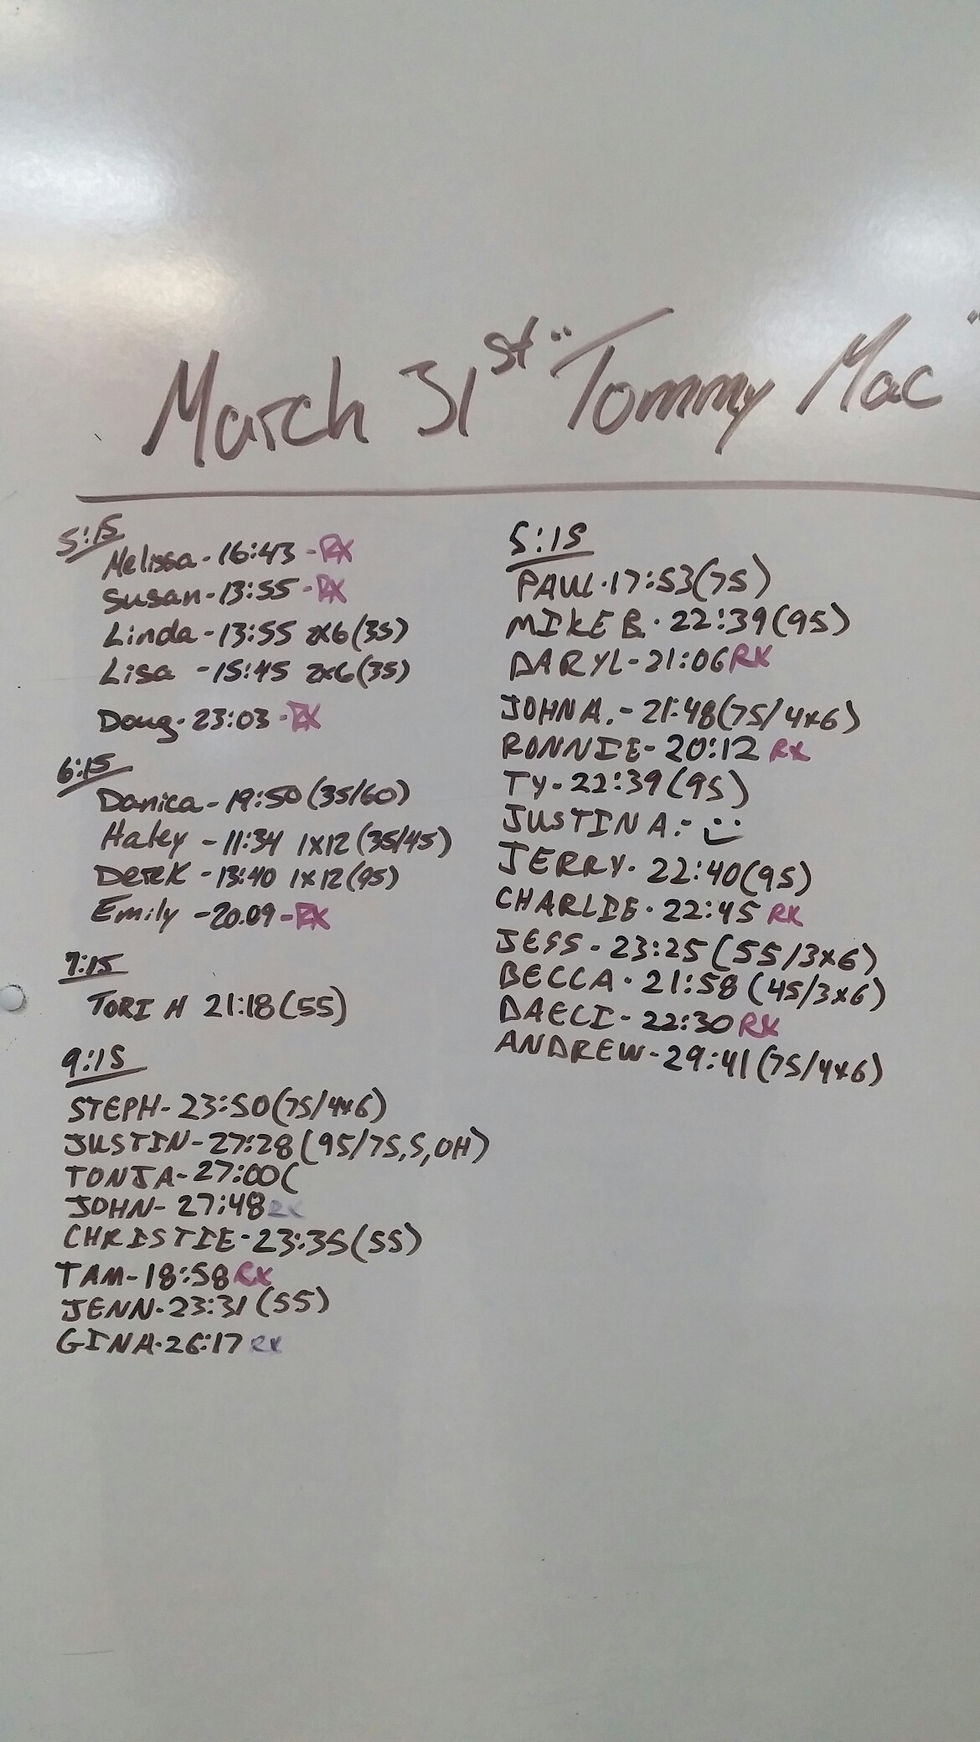 March 31st "Tommy Mac"
5:15
Melissa - 16:43 - RX
Susan - 13:55 - RX
Linda - 13:55 2x6 (35)
Lisa - 15:45 2x6 (35)
Doug - 23:03 - RX
6:15
Danica - 19:50 (35/60)
Haley - 11:34 1x12 (35/45)
Derek - 13:40 1x12 (95)
Emily - 20:09 - RX
7:15
TORI H 21:18 (55)
9:15
STEPH - 23:50 (75/4x6)
JUSTIN - 27:28 (95/75,S,OH)
TONJA - 27:00 (
JOHN - 27:48 RX
CHRISTIE - 23:35 (55)
TAM - 18:58 RX
JENN - 23:31 (55)
GINA - 26:17 RX
5:15
PAUL - 17:53 (75)
MIKE B. - 22:39 (95)
DARYL - 21:06 RX
JOHN A. - 21:48 (75/4x6)
RONNIE - 20:12 RX
TY - 22:39 (95)
JUSTIN A. -
JERRY - 22:40 (95)
CHARLIE - 22:45 RX
JESS - 23:25 (55/3x6)
BECCA - 21:58 (45/3x6)
DAECI - 22:30 RX
ANDREW - 29:41 (75/4x6)